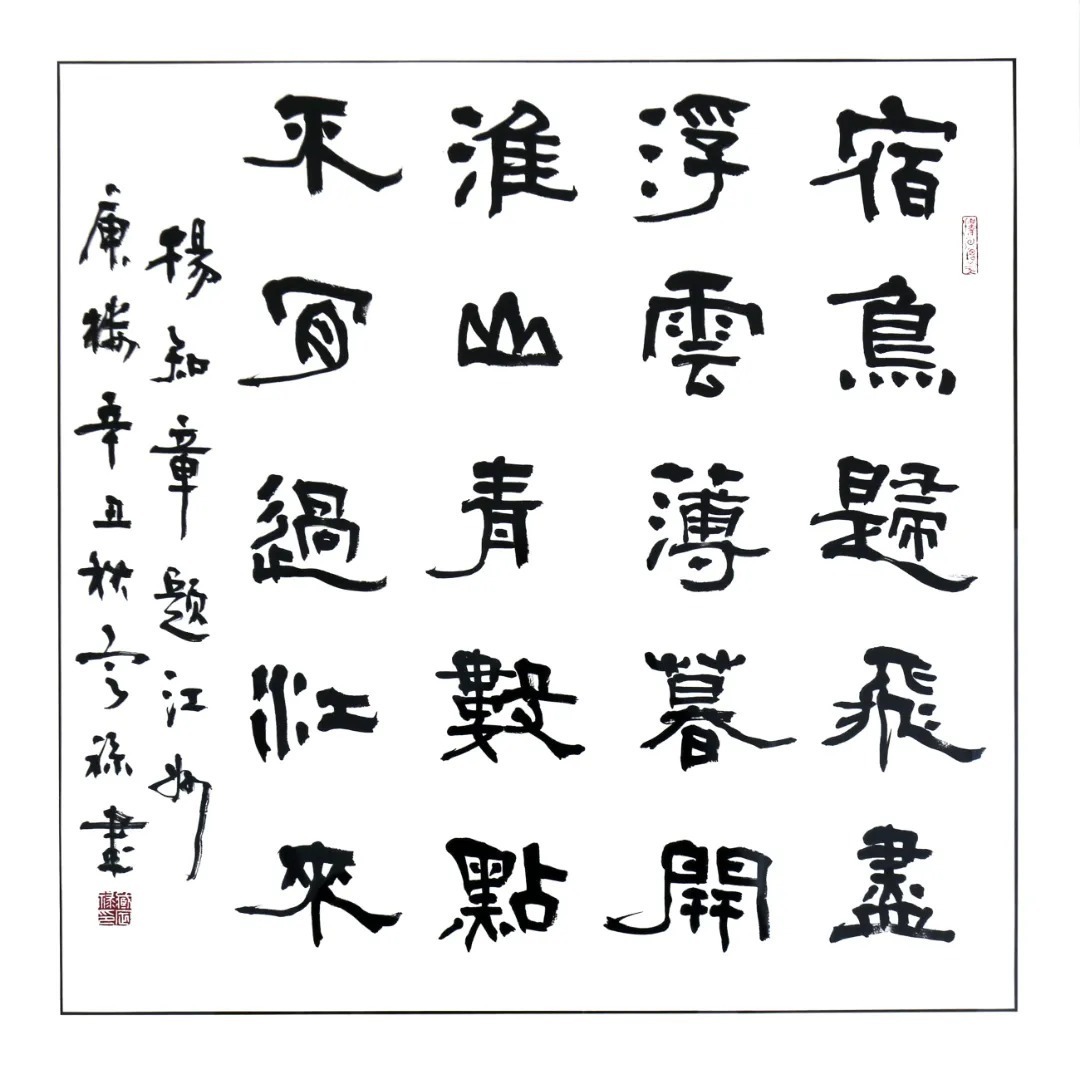 宿鳥歸飛盡
浮雲薄暮開
淮山青數點
不肯過江來
楊知章题江州
庾楼辛丑秋書